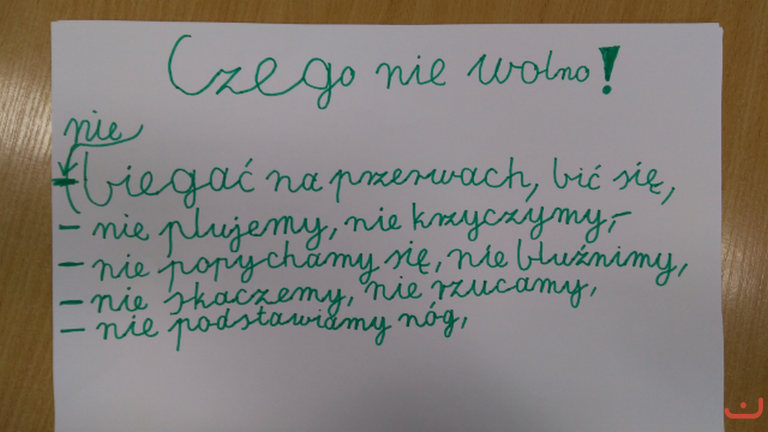 Czego nie wolno!
nie
- biegać na przerwach, bić się,
- nie plujemy, nie krzyczymy,-
- nie popychamy się, nie bluźnimy,
- nie skaczemy, nie rzucamy,
- nie podstawiamy nóg,